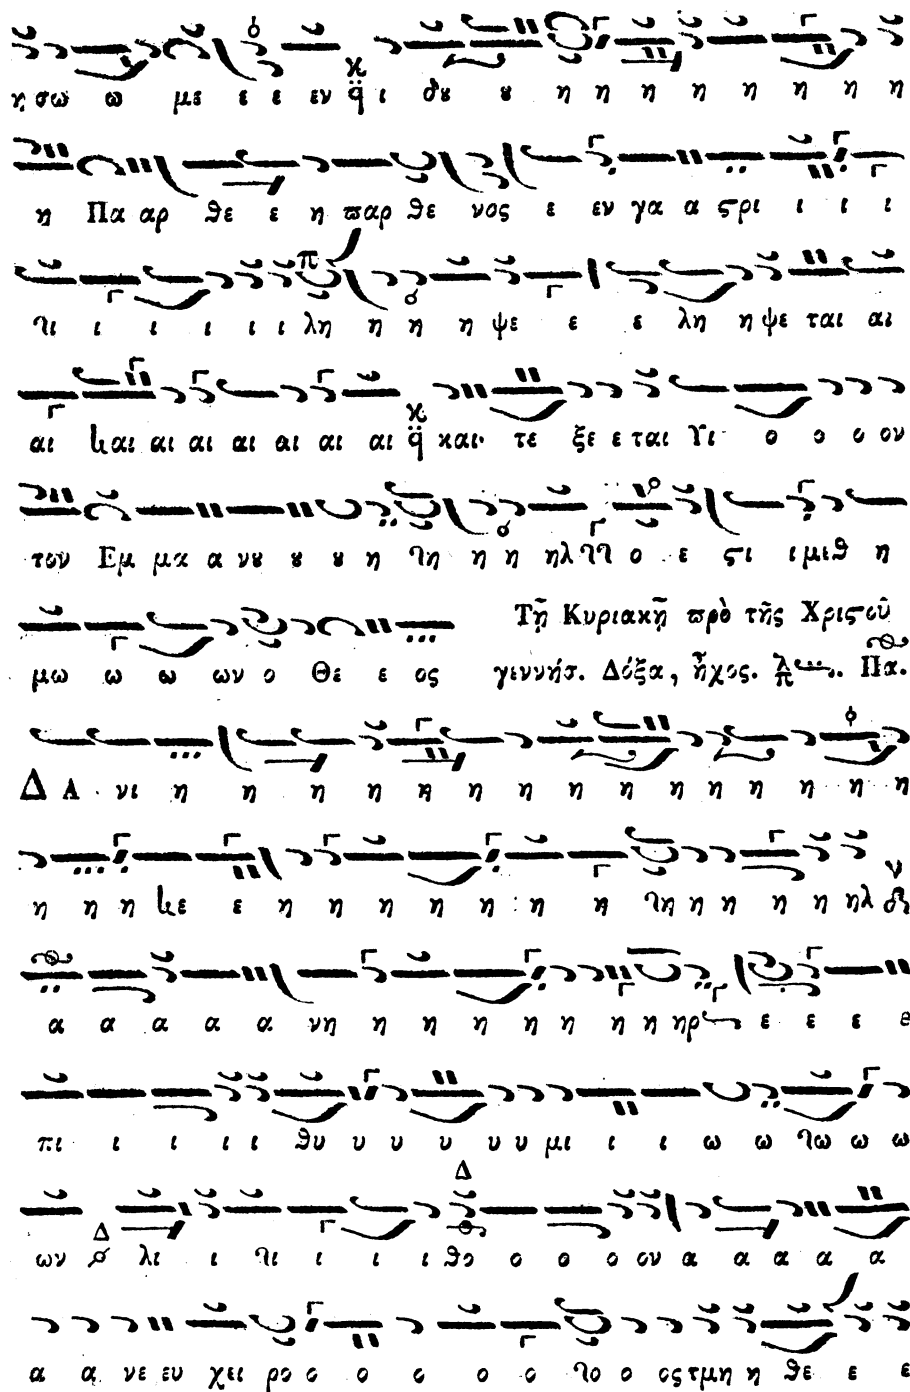 η σω ω με ε ε εν q̈ ι δȣ ȣ η η η η η η η η
η Πα αρ θε ε η ϖαρ θε νος ε εν γα α ϛρι ι ι ι
τι ι ι ι ι ι λη η η η ψε ε ε λη η ψε ται αι
αι και αι αι αι αι αι αι q̈ και τε ξε ε ται Υι ο ο ο ον
τον Εμ μα α νȣ ȣ ȣ η τη η η ηλ το ο ε ϛι ι μιθ η
μω ω ω ων ο Θε ε ος Τῇ Κυριακῇ ϖρὸ τῆς Χριϛοῦ
γεννήσ. Δόξα, ἦχος. Πα.
Δ Α νι η η η η η η η η η η η η η η
η η η κε ε η η η η η η η τη η η η η ηλ
α α α α α νη η η η η η η η ηρ ε ε ε θ
πι ι ι ι ι θυ υ υ υ υ υ μι ι ι ω ω τω ω ω
ων Δ λι ι τι ι ι ι θο ο ο ο ον α α α α α
α α νε ευ χει ρο ο ο ο ο ο το ο ος τμη η θε ε ε